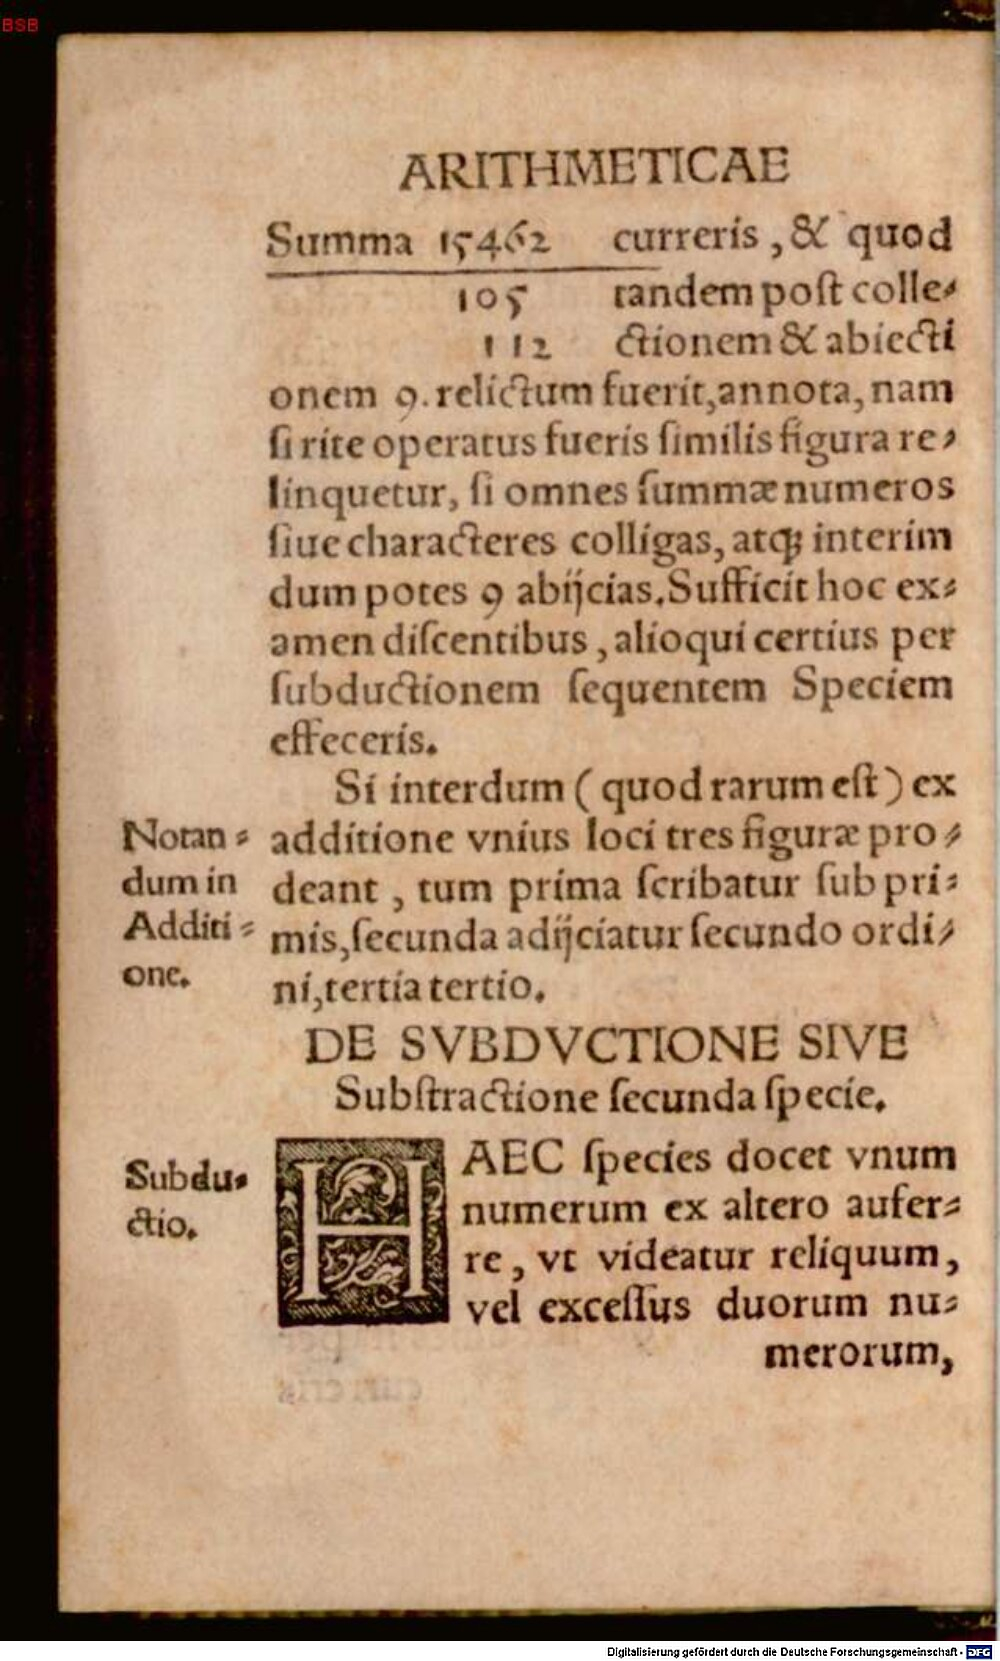 BSB
ARITHMETICAE
Summa 15462 curreris, & quod
105 tandem post colle-
112 ctionem & abiecti
onem 9. relictum fuerit, annota, nam
si rite operatus fueris similis figura re-
linquetur, si omnes summæ numeros
siue characteres colligas, atq; interim
dum potes 9 abijcias. Sufficit hoc ex-
amen discentibus, alioqui certius per
subductionem sequentem Speciem
effeceris.
Si interdum (quod rarum est) ex
additione vnius loci tres figuræ pro-
deant, tum prima scribatur sub pri-
mis, secunda adijciatur secundo ordi-
ni, tertia tertio.
Notan-
dum in
Additi-
one.
DE SVBDVCTIONE SIVE
Substractione secunda specie.
Subdu-
ctio.
HAEC species docet vnum
numerum ex altero aufer-
re, vt videatur reliquum,
vel excessus duorum nu-
merorum,
Digitalisierung gefördert durch die Deutsche Forschungsgemeinschaft - DFG